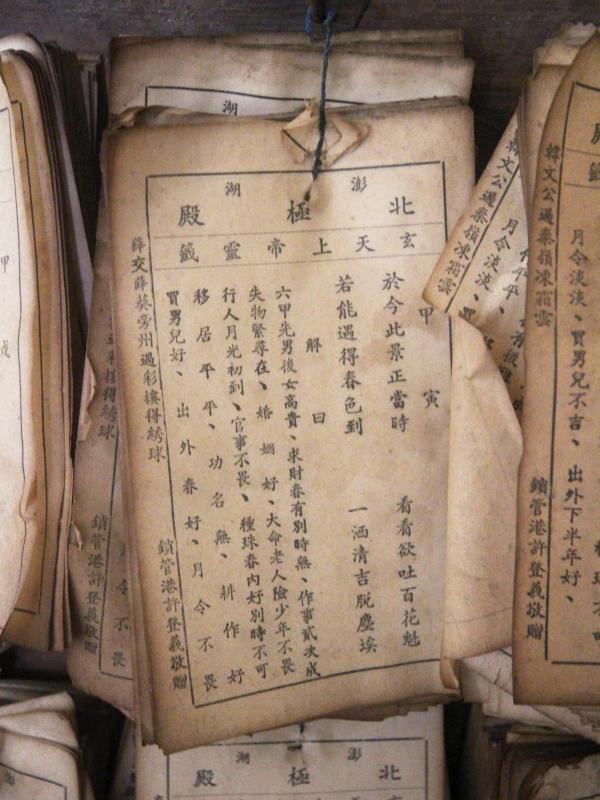 湖
澎湖
北極殿
玄天上帝靈籤
甲寅
於今此景正當時 看看欲吐百花魁
若能遇得春色到 一洒清吉脫塵埃
解曰
六甲先男後女高貴、求財春有別時無、作事貳次成
失物緊尋在、婚姻好、大命老人險少年不畏
行人月光初到、官事不畏、種珠春內好別時不可
移居平平、功名無、耕作好
買男兒好、出外春好、月令不畏
薛交薛葵旁州過彩樓得綉球 鎖管港許登義敬贈
月令淡淡、買男兒不吉、出外下半年好、
韓文公過秦嶺凍霜雪 鎖管港許登義敬贈
月令淡淡、
韓文公過秦嶺凍霜雪
令不畏
樓得綉球 鎖管港許登義敬贈
甲
戌
澎湖
北極殿